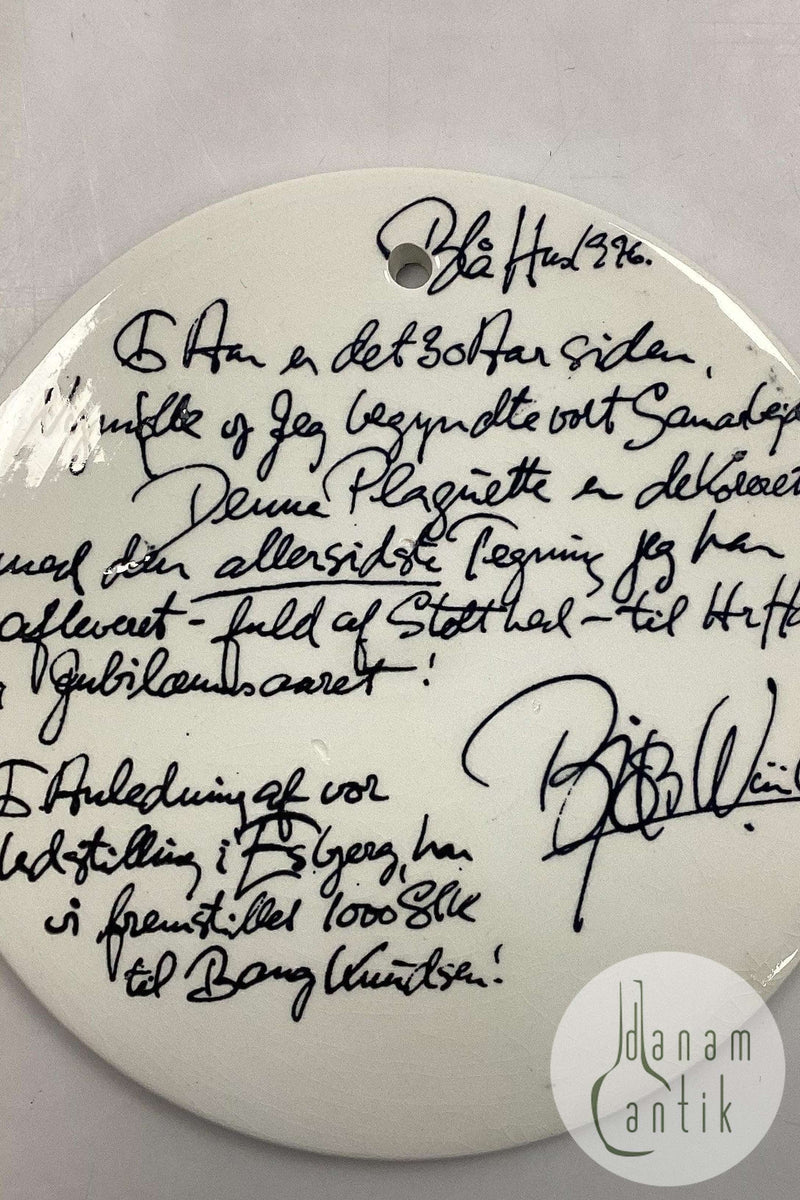 Blå Hus 1996.
I Aar er det 30 Aar siden,
Nymølle og Jeg begyndte vort Samarbejde
Denne Plaquette er dekoreret
med den allersidste Tegning jeg har
afleveret - fuld af Stolthed - til Hr
Jubilæumsaaret!
I Anledning af vor
Udstilling i Esbjerg, har
vi fremstillet 1000 Stk
til Bang Knudsen!
Bjørn Wiin
danam
antik